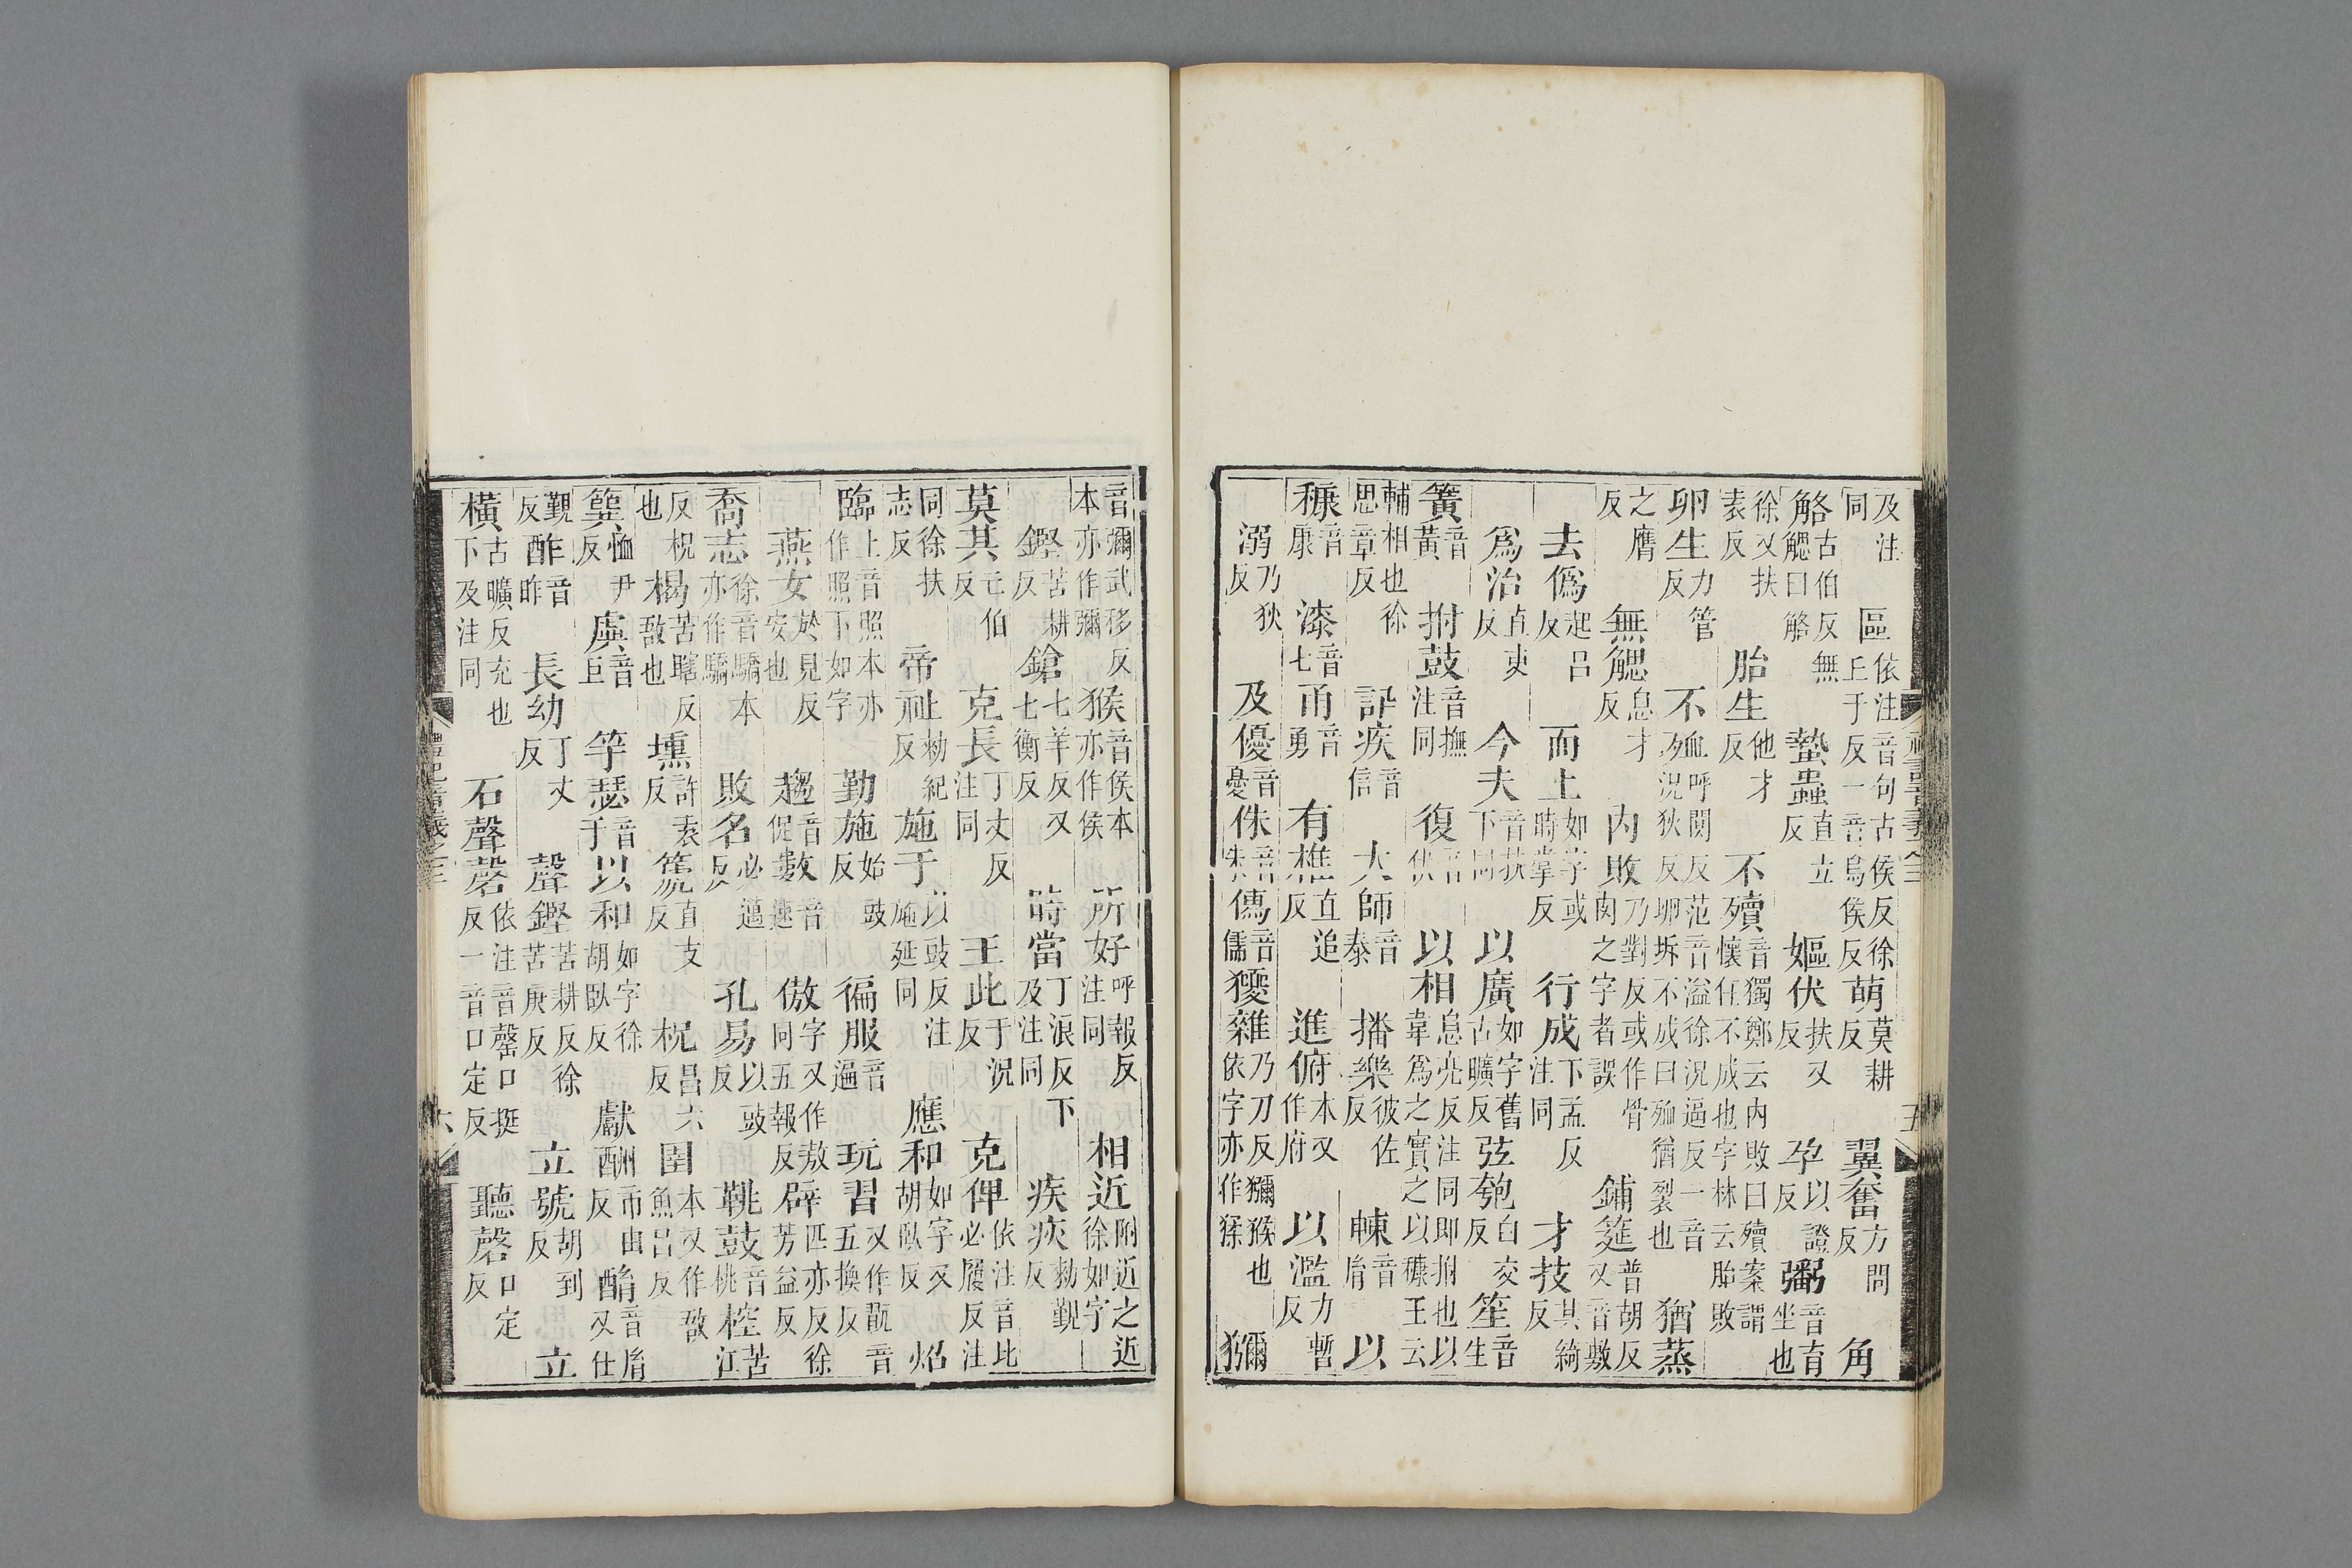 及注同區依注音句古侯反徐丘于反一音烏侯反萌莫耕反翼奮方問反角
觡古伯反無䚡曰觡蟄蟲直立反嫗伏扶又反孕以證反粥音育坐也
徐又扶袁反胎生他才反不殰音獨鄭云內敗曰殰案謂懷任不成也字林云胎敗
卵生力管反不殈呼闃反范音溢徐況逼反一音況狄反卵坼不成曰殈猶裂也猶蒸
之膺反無䚡息才反內敗乃對反或作骨肉之字者誤鋪筵普胡反又音敷
去僞起呂反而上如字或時掌反行成下孟反注同才技其綺反
爲治直吏反今夫音扶下同以廣如字舊古曠反弦匏白交反笙音生
簧音黃拊鼓音撫注同復音伏以相息亮反注同即拊也以韋爲之實之以穅王云
輔相也徐思章反訊疾音信大師音泰播樂彼佐反朄音胤以
穅音康漆音七甬音勇有椎直追反進俯本又作府以濫力暫反
溺乃狄反及優音憂侏音朱儒音儒獶雜乃刀反獼猴也依字亦作猱獼
音彌武移反本亦作彌猴音侯本亦作侯所好呼報反注同相近附近之近徐如字
鏗苦耕反鎗七羊反又七衡反時當丁浪反下及注同疾疢勑覲反
莫其亡伯反克長丁丈反注同王此于況反克俾依注音比必履反注
同徐扶志反帝祉勑紀反施于以豉反注施延同應和如字又胡臥反炤
臨上音照本亦作照下如字勤施始豉反徧服音遍玩習又作翫音五換反
燕女於見反安也趨音促數音速傲字又作敖同五報反辟匹亦反徐芳益反
喬志徐音驕本亦作驕敗名必邁反孔易以豉反鞉鼓音桃椌苦江
反柷也楬苦瞎反敔也壎許袁反篪直支反柷昌六反圉本又作敔魚呂反
簨恤尹反虡音巨竽瑟音于以和如字徐胡臥反獻酬市由反酳音胤又仕
覲反酢音昨長幼丁丈反聲鏗苦耕反徐苦庚反立號胡到反立
橫古曠反充也下及注同石聲磬依注音罄口挺反一音口定反聽磬口定反